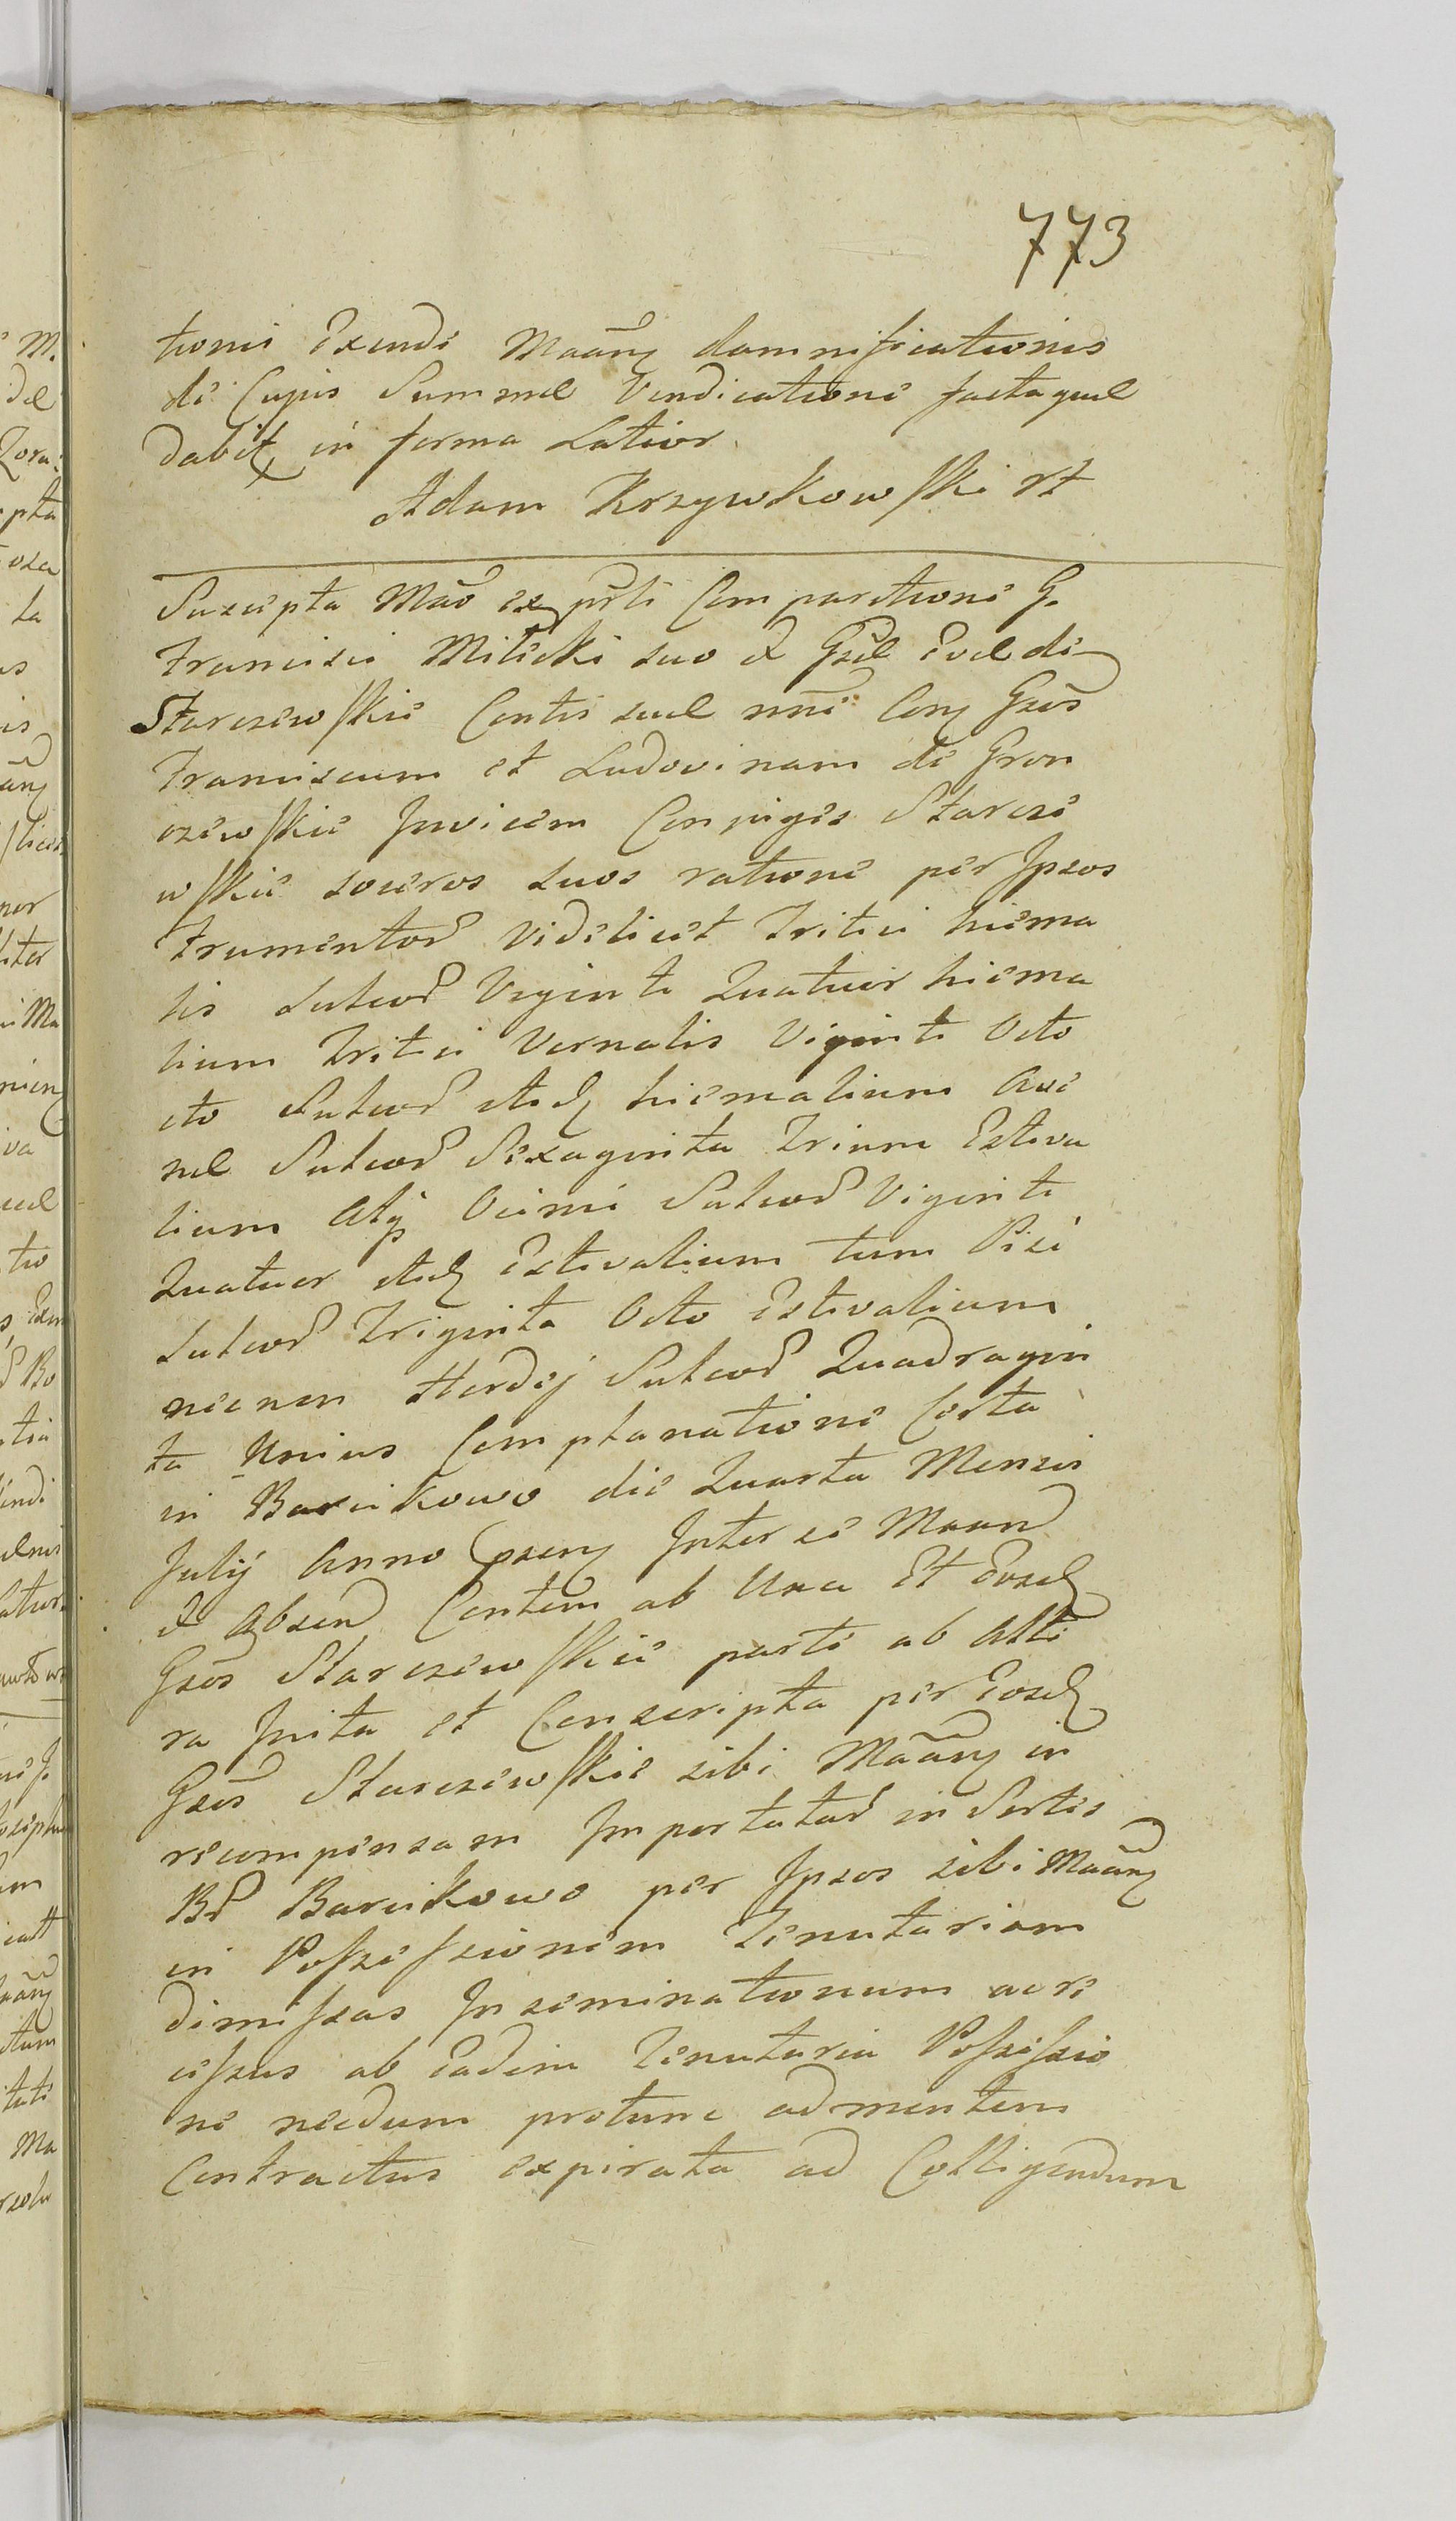 773
tionis Exendi Maãnɟ damnificationis
de Cujus Summæ Vendicatione factaquæ
dabitɟ in forma Latior
Adam Krzywkowski rt
Suscepta Mão ex prti Comparitione G.
Francisci Milicki suo et Gsæ Evæ de
Starczewskie Contis suæ nnê Conɟ Gsõs
Franciscum et Ludovinam de Gron
czewskie Invicem Conjuges Starcze
wskie soceros suos ratione per Ipsos
Frumentor Videlicet Tritici hiema
lis Sulcor Viginti Quatuor hiema
lium Tritici Vernalis Viginti Octo
cto Sulcor itid hiemalium Ave
næ Sulcor Sexaginta Trium Estiva
lium atq Ocimi Sulcor Viginti
Quatuor itid Estivalium tum Pisi
Sulcor Triginta Octo Estivalium
necnon Hordej Sulcor Quadragin
ta Unius Complanatione Certa
in Barcikowo die Quarta Mensis
Julij Anno psenɟ Inter se Maan
et Absen Contem ab Una Et Eosd
Gsõs Starczewskie parte ab Alte
ra Inita et Conscripta per Eosd
Gsõs Starczewskie sibi Maãnɟ in
recompensam Importatar in Sortes
Br Barcikowo per Ipsos sibi Maãnɟ
in Possessionem Tenutariam
dimissas Inseminationum ac re
cissus ab Eadem Tenutaria Possessio
ne necdum protunc ad mentem
Contractus expirata ad Colligendum